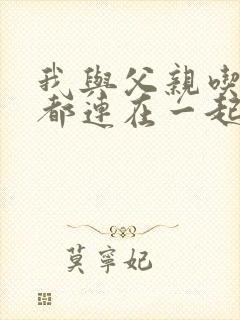 我與父親喫
都連在一起
莫寧妃